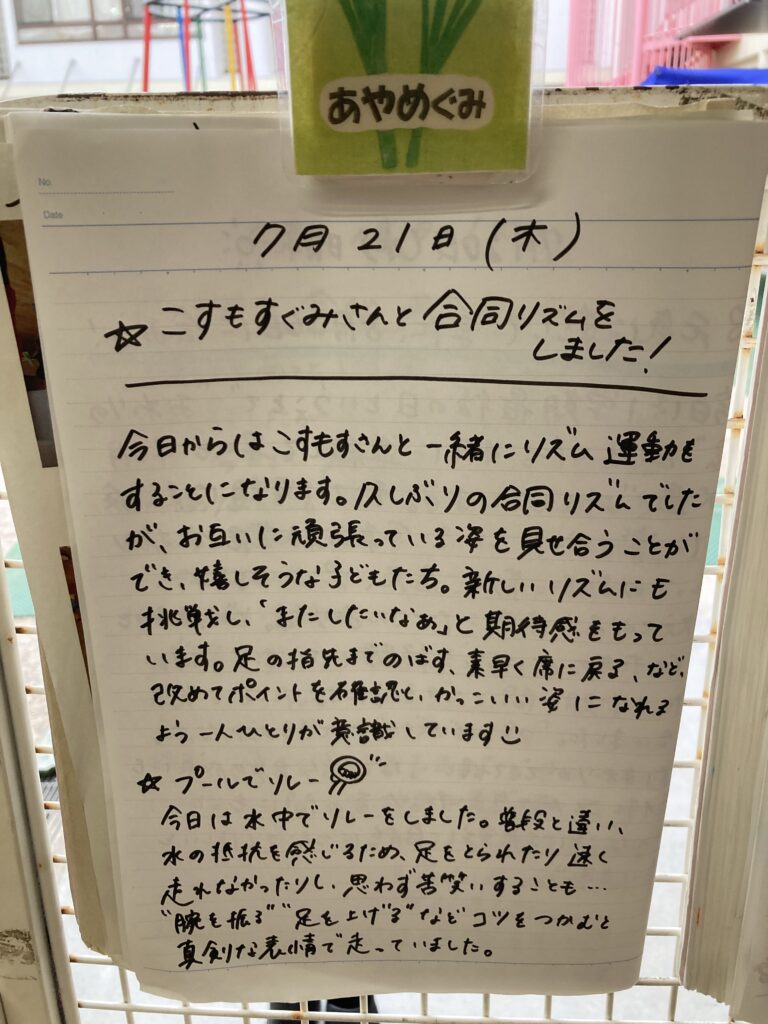 あやめぐみ
No.
Date
7月21日(木)
☆こすもすぐみさんと合同リズムを
しました!
今日からはこすもすさんと一緒にリズム運動を
することになります。久しぶりの合同リズムでした
が、お互いに頑張っている姿を見せ合うことが
でき、嬉しそうな子どもたち。新しいリズムにも
挑戦し、「またしたいなぁ」と期待感をもって
います。足の指先までのばす、素早く席に戻る、など、
改めてポイントを確認し、かっこいい姿になれる
よう一人ひとりが意識しています
☆プールでリレー
今日は水中でリレーをしました。普段と違い、
水の抵抗を感じるため、足をとられたり速く
走れなかったりし、思わず苦笑いすることも…
"腕を振る""足を上げる"などコツをつかむと
真剣な表情で走っていました。